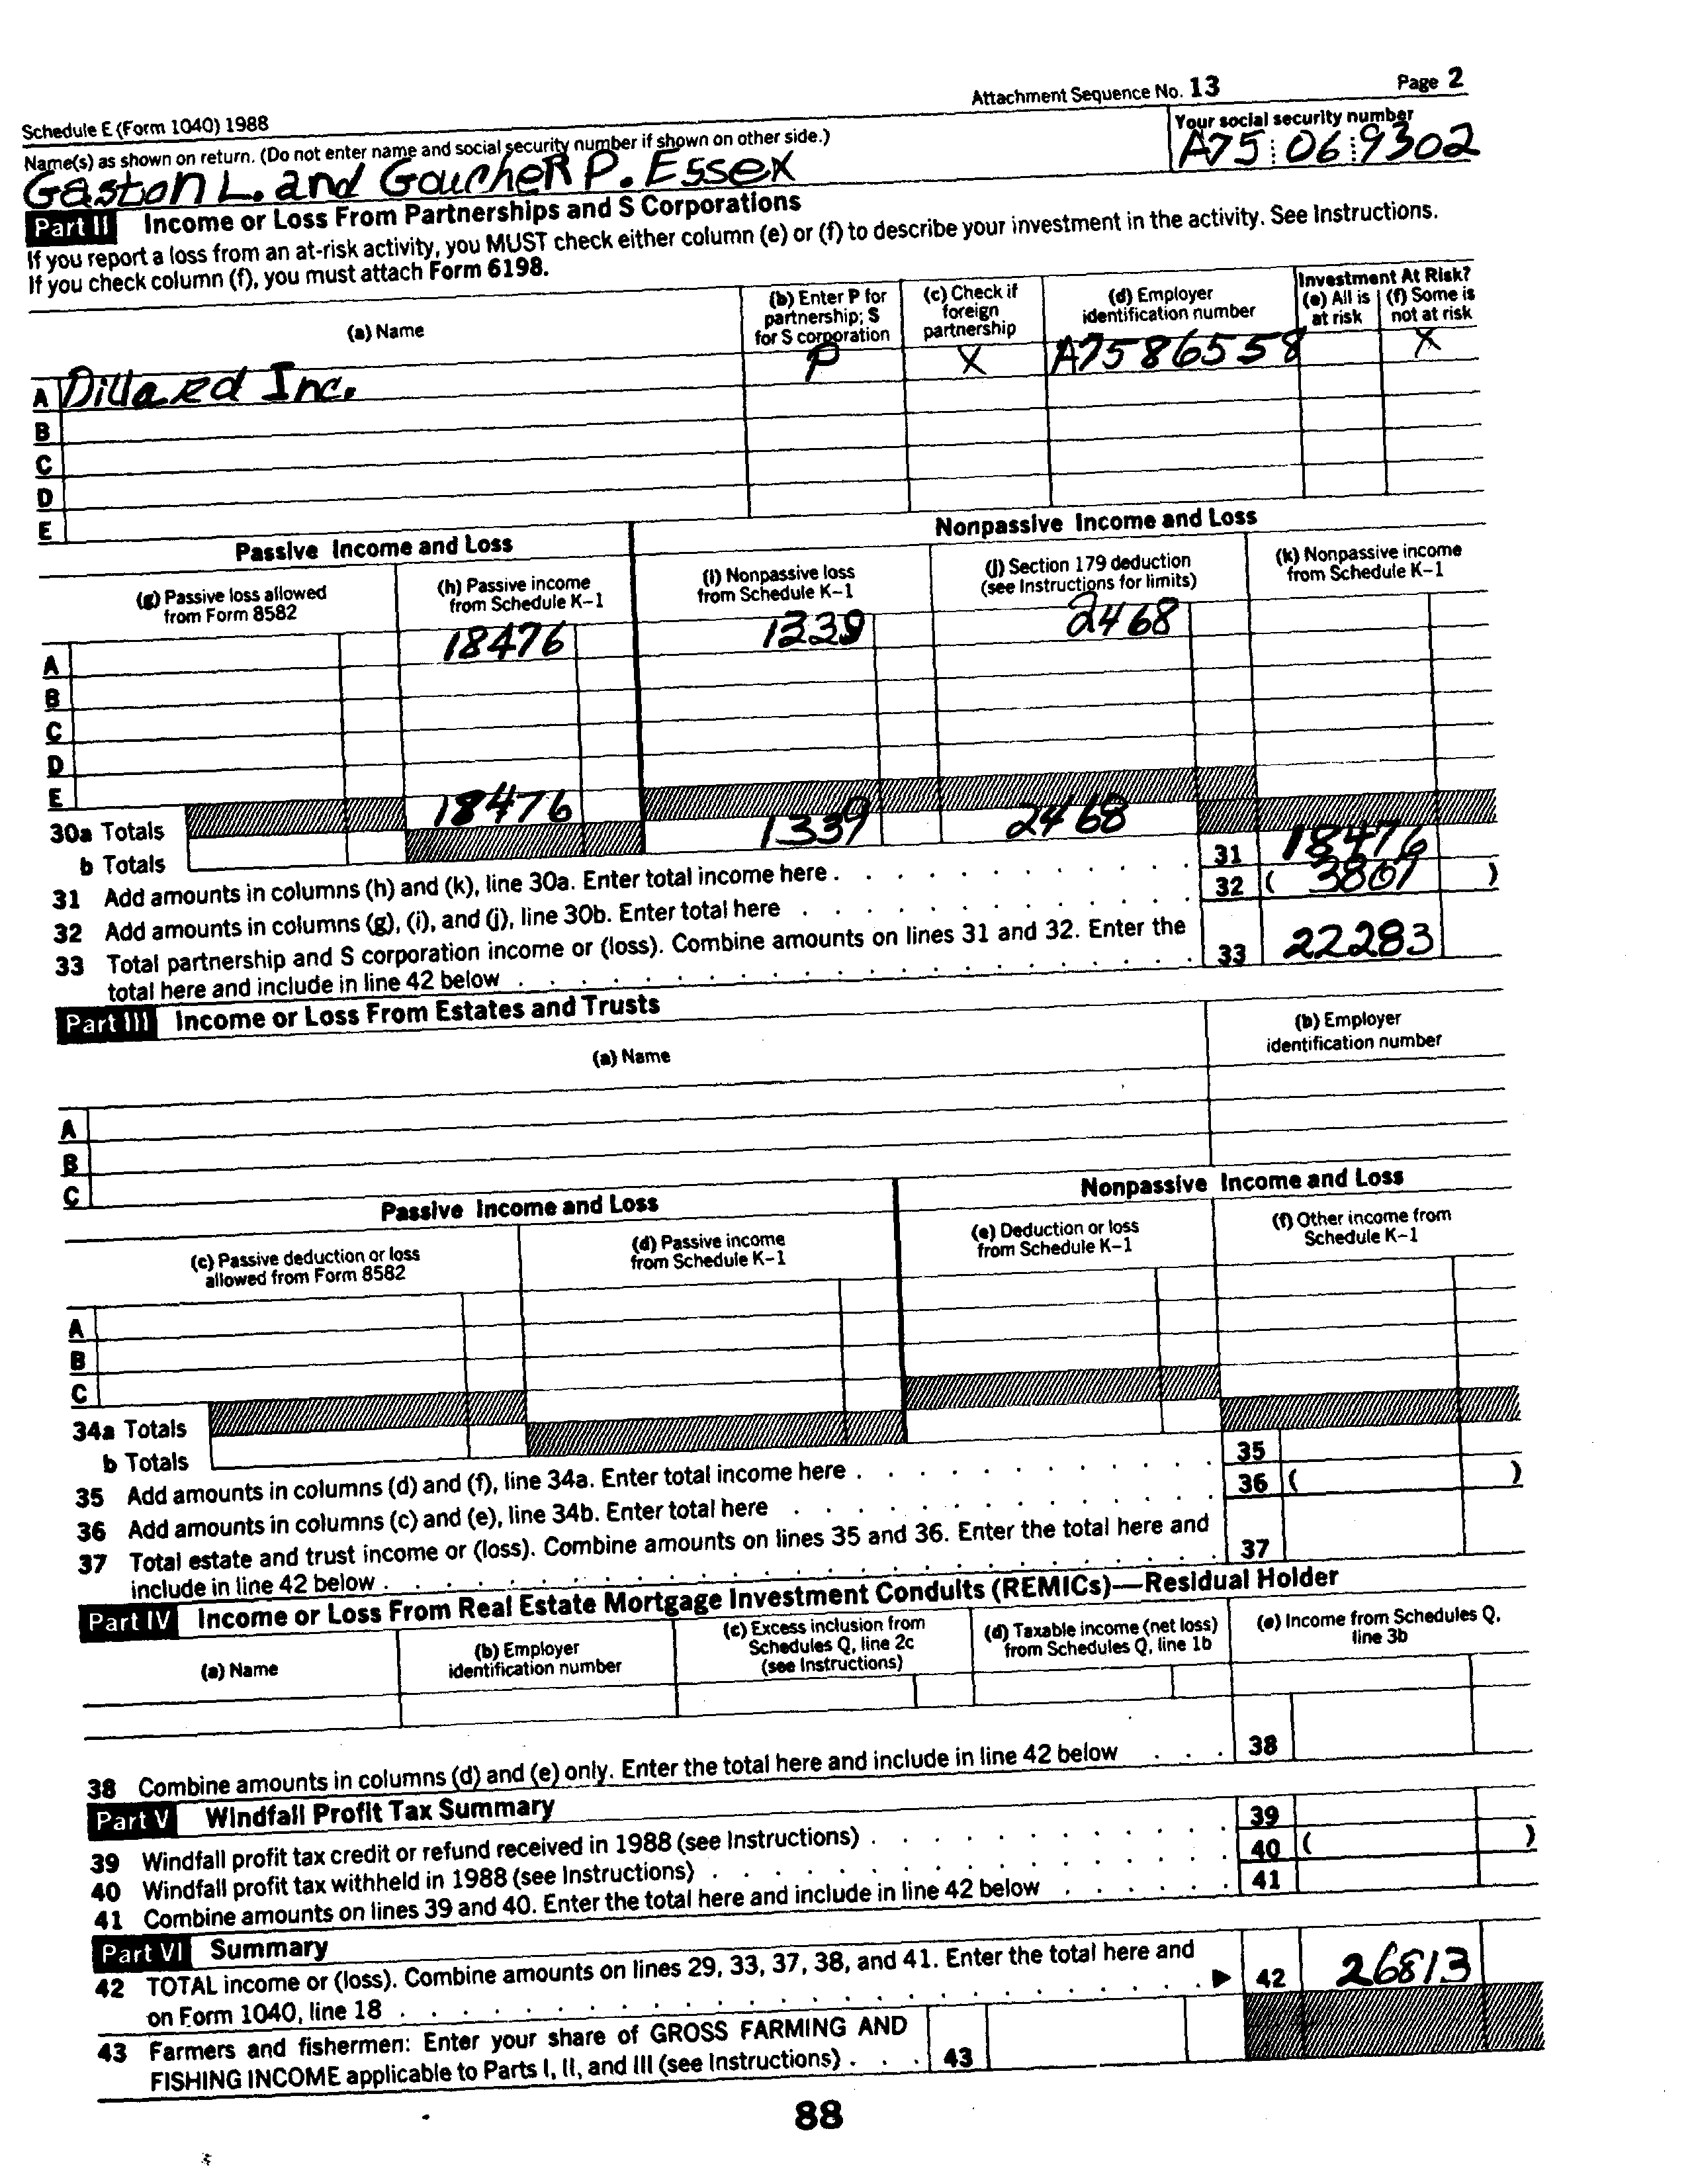 Attachment Sequence No. 13 Page 2
Schedule E (Form 1040) 1988
Name(s) as shown on return. (Do not enter name and social security number if shown on other side.) Your social security number
Gaston L. and Goucher P. Essex A75 06 9302
Part II Income or Loss From Partnerships and S Corporations
If you report a loss from an at-risk activity, you MUST check either column (e) or (f) to describe your investment in the activity. See Instructions.
If you check column (f), you must attach Form 6198.
(a) Name
(b) Enter P for partnership; S for S corporation
(c) Check if foreign partnership
(d) Employer identification number
Investment At Risk?
(e) All is at risk
(f) Some is not at risk
A Dillard Inc. P X A7586558 X
B
C
D
E
Passive Income and Loss
Nonpassive Income and Loss
(g) Passive loss allowed from Form 8582
(h) Passive income from Schedule K–1
(i) Nonpassive loss from Schedule K–1
(j) Section 179 deduction (see Instructions for limits)
(k) Nonpassive income from Schedule K–1
A 18476 1339 2468
B
C
D
E
30a Totals 18476
b Totals 1339 2468
31 Add amounts in columns (h) and (k), line 30a. Enter total income here . 31 18476
32 Add amounts in columns (g), (i), and (j), line 30b. Enter total here 32 ( 3807 )
33 Total partnership and S corporation income or (loss). Combine amounts on lines 31 and 32. Enter the
total here and include in line 42 below 33 22283
Part III Income or Loss From Estates and Trusts
(a) Name
(b) Employer identification number
A
B
C
Passive Income and Loss
Nonpassive Income and Loss
(c) Passive deduction or loss allowed from Form 8582
(d) Passive income from Schedule K–1
(e) Deduction or loss from Schedule K–1
(f) Other income from Schedule K–1
A
B
C
34a Totals
b Totals
35 Add amounts in columns (d) and (f), line 34a. Enter total income here . 35
36 Add amounts in columns (c) and (e), line 34b. Enter total here 36 ( )
37 Total estate and trust income or (loss). Combine amounts on lines 35 and 36. Enter the total here and
include in line 42 below . 37
Part IV Income or Loss From Real Estate Mortgage Investment Conduits (REMICs)—Residual Holder
(a) Name
(b) Employer identification number
(c) Excess inclusion from Schedules Q, line 2c (see Instructions)
(d) Taxable income (net loss) from Schedules Q, line 1b
(e) Income from Schedules Q, line 3b
38 Combine amounts in columns (d) and (e) only. Enter the total here and include in line 42 below 38
Part V Windfall Profit Tax Summary
39 Windfall profit tax credit or refund received in 1988 (see Instructions) . 39
40 Windfall profit tax withheld in 1988 (see Instructions) 40 ( )
41 Combine amounts on lines 39 and 40. Enter the total here and include in line 42 below 41
Part VI Summary
42 TOTAL income or (loss). Combine amounts on lines 29, 33, 37, 38, and 41. Enter the total here and
on Form 1040, line 18 ▶ 42 26813
43 Farmers and fishermen: Enter your share of GROSS FARMING AND
FISHING INCOME applicable to Parts I, II, and III (see Instructions) . 43
88